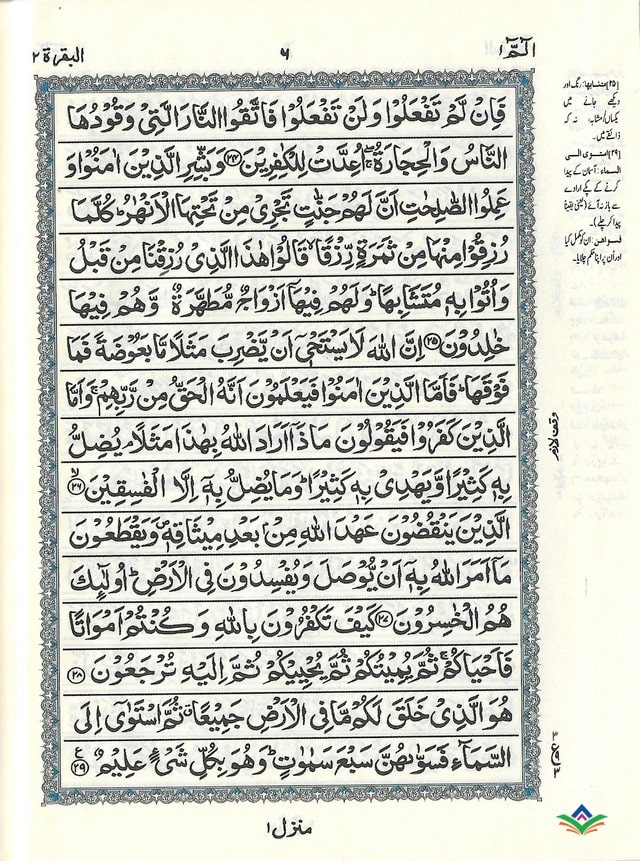 الٓمّٓ ۱
۶
البقرة ۲
فَاِنْ لَّمْ تَفْعَلُوْا وَلَنْ تَفْعَلُوْا فَاتَّقُوا النَّارَ الَّتِیْ وَقُوْدُهَا
النَّاسُ وَالْحِجَارَةُ ۖۚ اُعِدَّتْ لِلْكٰفِرِیْنَ ﴿۲۴﴾ وَبَشِّرِ الَّذِیْنَ اٰمَنُوْا وَ
عَمِلُوا الصّٰلِحٰتِ اَنَّ لَهُمْ جَنّٰتٍ تَجْرِیْ مِنْ تَحْتِهَا الْاَنْهٰرُ ؕ كُلَّمَا
رُزِقُوْا مِنْهَا مِنْ ثَمَرَةٍ رِّزْقًا ۙ قَالُوْا هٰذَا الَّذِیْ رُزِقْنَا مِنْ قَبْلُ
وَاُتُوْا بِهٖ مُتَشَابِهًا ؕ وَلَهُمْ فِیْهَاۤ اَزْوَاجٌ مُّطَهَّرَةٌ وَّهُمْ فِیْهَا
خٰلِدُوْنَ ﴿۲۵﴾ اِنَّ اللّٰهَ لَا یَسْتَحْیٖۤ اَنْ یَّضْرِبَ مَثَلًا مَّا بَعُوْضَةً فَمَا
فَوْقَهَا ؕ فَاَمَّا الَّذِیْنَ اٰمَنُوْا فَیَعْلَمُوْنَ اَنَّهُ الْحَقُّ مِنْ رَّبِّهِمْ ۚ وَاَمَّا
الَّذِیْنَ كَفَرُوْا فَیَقُوْلُوْنَ مَاذَاۤ اَرَادَ اللّٰهُ بِهٰذَا مَثَلًا ۘ یُضِلُّ
بِهٖ كَثِیْرًا وَّیَهْدِیْ بِهٖ كَثِیْرًا ؕ وَمَا یُضِلُّ بِهٖۤ اِلَّا الْفٰسِقِیْنَ ۙ﴿۲۶﴾
الَّذِیْنَ یَنْقُضُوْنَ عَهْدَ اللّٰهِ مِنْۢ بَعْدِ مِیْثَاقِهٖ ۪ وَیَقْطَعُوْنَ
مَاۤ اَمَرَ اللّٰهُ بِهٖۤ اَنْ یُّوْصَلَ وَیُفْسِدُوْنَ فِی الْاَرْضِ ؕ اُولٰٓئِكَ
هُمُ الْخٰسِرُوْنَ ﴿۲۷﴾ كَیْفَ تَكْفُرُوْنَ بِاللّٰهِ وَكُنْتُمْ اَمْوَاتًا
فَاَحْیَاكُمْ ۚ ثُمَّ یُمِیْتُكُمْ ثُمَّ یُحْیِیْكُمْ ثُمَّ اِلَیْهِ تُرْجَعُوْنَ ﴿۲۸﴾
هُوَ الَّذِیْ خَلَقَ لَكُمْ مَّا فِی الْاَرْضِ جَمِیْعًا ۗ ثُمَّ اسْتَوٰۤی اِلَی
السَّمَآءِ فَسَوّٰىهُنَّ سَبْعَ سَمٰوٰتٍ ؕ وَهُوَ بِكُلِّ شَیْءٍ عَلِیْمٌ ﴿۲۹﴾ ع
[۲۵] متشابها: رنگ اور
دیکھے جانے میں
یکساں/مشابہ، نہ کہ
ذائقے میں۔
[۲۹] استوی الی
السماء: آسمان کے پیدا
کرنے کے پکے ارادے
سے باز نہ آئے (یعنی یقیناً
پیدا کر چلے)۔
وقف لازم
۳
ع
۳
منزل ۱